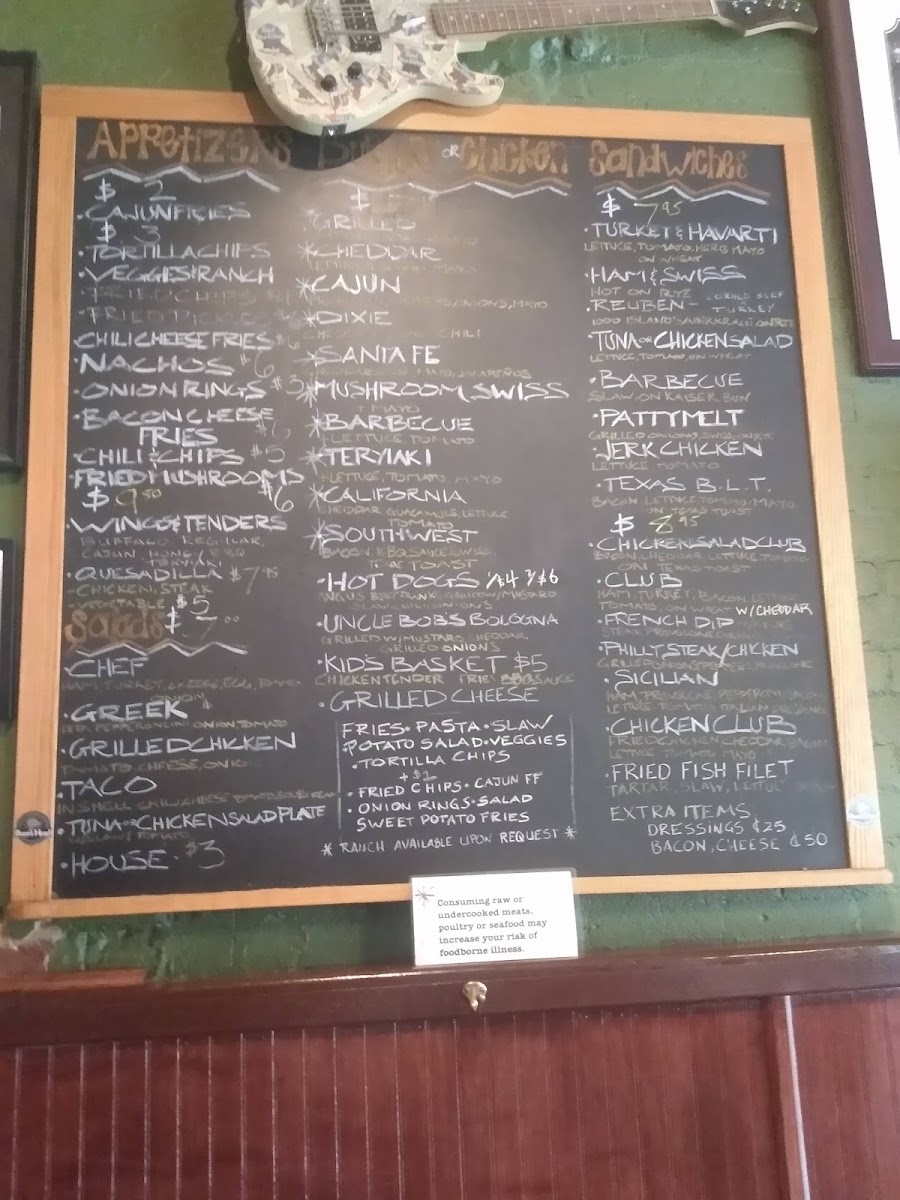 APPetizers
$ 2
• CAJUN FRIES
$ 3
• TORTILLA CHIPS
• VEGGIES & RANCH
• FRIED CHIPS
• FRIED PICKLE
• CHILI CHEESE FRIES $6
• NACHOS $6
• ONION RINGS $3
• BACON CHEESE
FRIES
• CHILI & CHIPS $5
• FRIED MUSHROOMS
$ 9.50 $6
• WINGS & TENDERS
BUFFALO, REGULAR,
CAJUN, HONEY BBQ
TERIYAKI
• QUESADILLA $7.95
- CHICKEN, STEAK
- VEGETABLE $5
Salads $7.00
• CHEF
HAM, TURKEY, CHEESE, EGG, TOMATO
ONION
• GREEK
FETA, PEPPERONCINI, ONION TOMATO
• GRILLED CHICKEN
TOMATO, CHEESE, ONION
• TACO
IN SHELL CHILI, CHEESE TOMATO SOUR CREAM
• TUNA OR CHICKEN SALAD PLATE
TOMATO
• HOUSE • $3
OR Chicken
$
GRILLED
* CHEDDAR
* CAJUN
ONIONS, MAYO
* DIXIE
CHILI
* SANTA FE
MAYO, JALAPEÑOS
* MUSHROOM, SWISS
+ MAYO
* BARBECUE
+ LETTUCE, TOMATO
* TERYIAKI
+ LETTUCE, TOMATO, MAYO
* CALIFORNIA
CHEDDAR GUACAMOLE, LETTUCE
TOMATO
* SOUTHWEST
BACON, BBQ SAUCE, SWISS,
TEXAS TOAST
• HOT DOGS 1/$4 2/$6
ANGUS BEEF FRANK, MUSTARD
SLAW, CHILI, ONIONS
• UNCLE BOB'S BOLOGNA
GRILLED W/MUSTARD, CHEDDAR,
GRILLED ONIONS
• KID'S BASKET $5
CHICKEN TENDER FRIES BBQ SAUCE
• GRILLED CHEESE
FRIES • PASTA • SLAW
POTATO SALAD • VEGGIES
• TORTILLA CHIPS
+ $1
• FRIED CHIPS • CAJUN FF
• ONION RINGS • SALAD
SWEET POTATO FRIES
* RANCH AVAILABLE UPON REQUEST *
Sandwiches
$ 7.95
• TURKEY & HAVARTI
LETTUCE, TOMATO, HERB MAYO
ON WHEAT
• HAM & SWISS
HOT ON RYE
• REUBEN - CORNED BEEF
TURKEY
1000 ISLAND SAUERKRAUT ON RYE
• TUNA OR CHICKEN SALAD
LETTUCE, TOMATO, ON WHEAT
• BARBECUE
SLAW, ON KAISER BUN
• PATTY MELT
GRILLED ONIONS, SWISS, ON RYE
• JERK CHICKEN
LETTUCE TOMATO
• TEXAS B.L.T.
BACON, LETTUCE, TOMATO, MAYO
ON TEXAS TOAST
$ 8.95
• CHICKEN SALAD CLUB
BACON, CHEDDAR, LETTUCE, TOMATO
ON TEXAS TOAST
• CLUB
HAM, TURKEY, BACON, LETTUCE
TOMATO, ON WHEAT W/CHEDDAR
• FRENCH DIP
STEAK PROVOLONE
• PHILLY, STEAK/CHICKEN
GRILLED ONIONS PROVOLONE
• SICILIAN
HAM, PROVOLONE, PEPPERONI, SALAMI
LETTUCE TOMATO ITALIAN DRESSING
• CHICKEN CLUB
FRIED CHICKEN, CHEDDAR, BACON
LETTUCE TOMATO MAYO
• FRIED FISH FILET
TARTAR, SLAW, LETTUCE
EXTRA ITEMS
DRESSINGS ¢25
BACON, CHEESE ¢50
* Consuming raw or
undercooked meats,
poultry or seafood may
increase your risk of
foodborne illness.